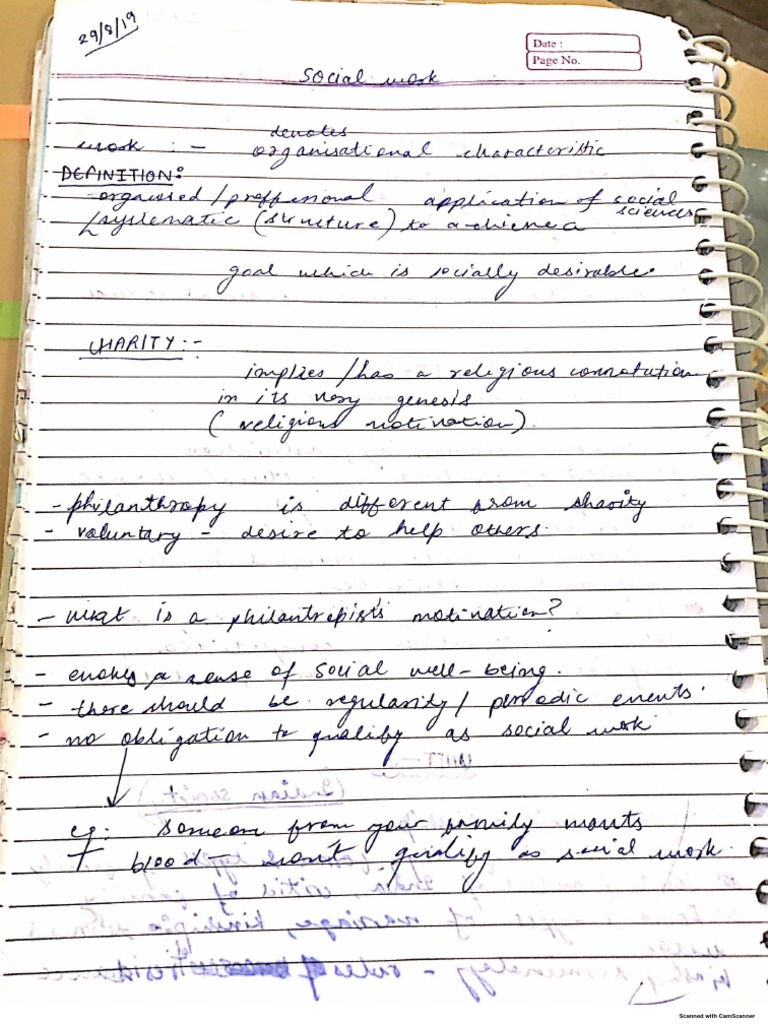 29/8/19
Date :
Page No.
Social work
denotes
work :- organisational characteristic
DEFINITION:
orgacised/proffesional application of social
sciences
/systematic (structure) to achieve a
goal which is socially desirable.
CHARITY:-
implies /has a religious connotation
in its very genesis
(religious motivation).
- philanthropy is different from charity
- voluntary - desire to help others.
- what is a philantropist's motivation?
- evokes a sense of social well-being.
- there should be regularity/ periodic events.
- no obligation to qualify as social work
eg: someone from your family wants
blood - wont qualify as social work.
Scanned with CamScanner